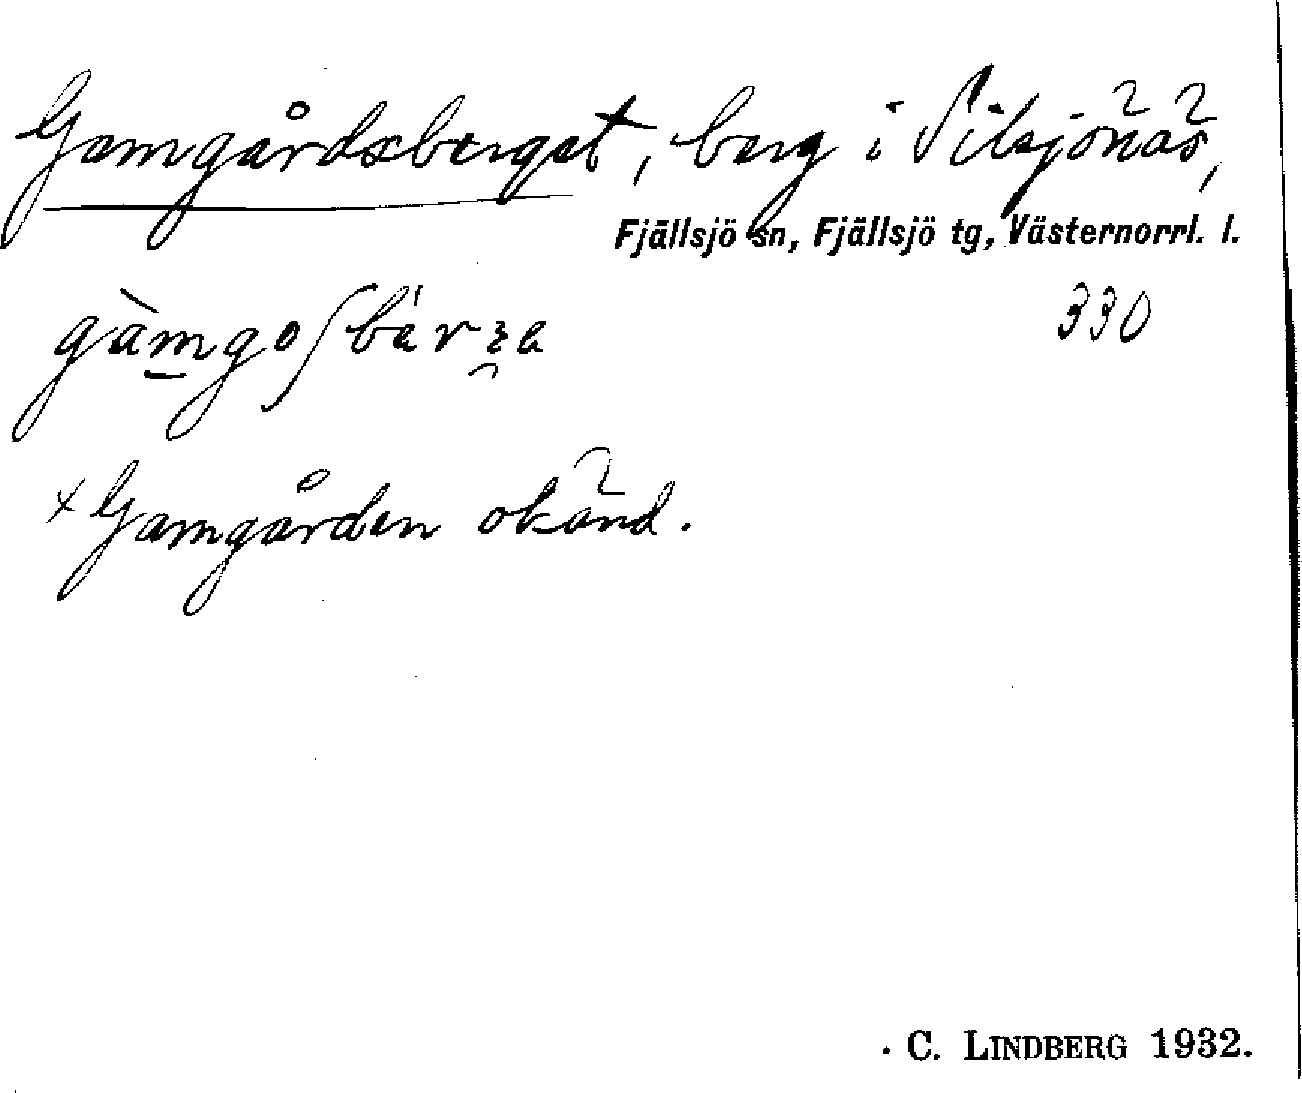 Gamgårdsberget, berg i Silsjönäs,
Fjällsjö sn, Fjällsjö tg, Västernorrl. l.
330
×Gamgården okänd.
C. LINDBERG 1932.